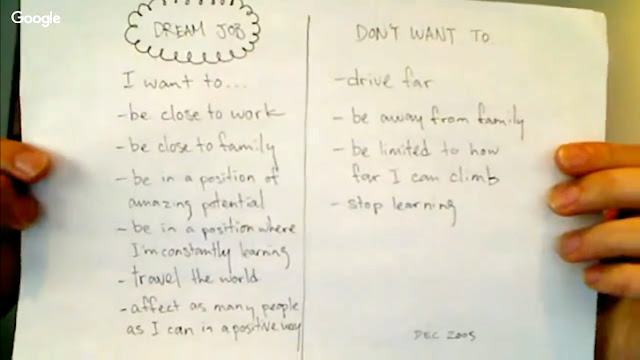 Google
DREAM JOB
I want to...
- be close to work
- be close to family
- be in a position of
amazing potential
- be in a position where
I'm constantly learning
- travel the world
- affect as many people
as I can in a positive way
DON'T WANT TO
- drive far
- be away from family
- be limited to how
far I can climb
- stop learning
DEC 2005